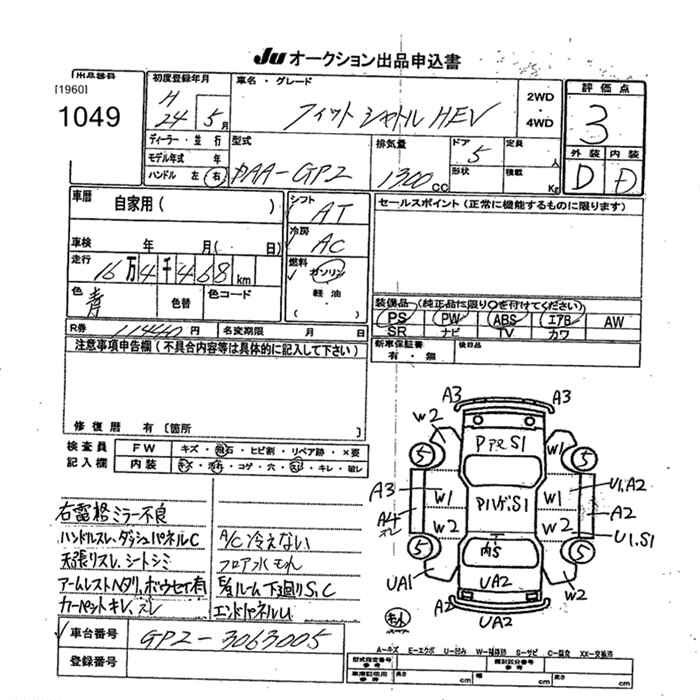 Ju オークション出品申込書
出品番号
[1960]
1049
初度登録年月
H
24 5月
車名・グレード
フィットシャトル HEV
2WD
・
4WD
評価点
3
外装 内装
D D
ディーラー・並行
モデル年式 年
ハンドル 左 右
型式
DAA-GP2
排気量
1300 CC
ドア 5
形状
定員 人
積載 Kg
車歴
自家用 ( )
車検 年 月 ( 日)
走行
16万4千468km
色 青
色替
色コード
R券 11440円
名変期限 月 日
シフト
AT
冷房
AC
燃料
ガソリン
軽油
( )
セールスポイント (正常に機能するものに限ります)
装備品 (純正品に限り○を付けてください)
PS PW ABS エアB AW
SR ナビ TV カワ
新車保証書
有・無
後日品
注意事項申告欄 (不具合内容等は具体的に記入して下さい)
修復歴 有 [箇所 ]
検査員
記入欄
FW キズ・飛石・ヒビ割・リペア跡・×要
内装 キズ・汚れ・コゲ・穴・スレ・キレ・破レ
右電格ミラー不良
ハンドルスレ、ダッシュパネルC
天張リスレ、シートシミ
アームレストヘタリ、ボウセイ有
カーペットキレ、スレ
A/C冷えない
フロア水もれ
下廻りS、C
エンドパネルU
車台番号 GP2-3063005
登録番号
A3 A3
W2
5 5
W1
A3 W1 W1 U1.A2
A4 W2 W2 A2
U1.S1
5 5
UA1 W2
UA2
A2 A2
UA2
A-キズ E-エクボ U-凹み W-補修跡 S-サビ C-腐食 XX-交換済
型式指定番号
参考
類別区分番号
参考
車庫証明用
参考
長さ cm 幅 cm 高さ cm